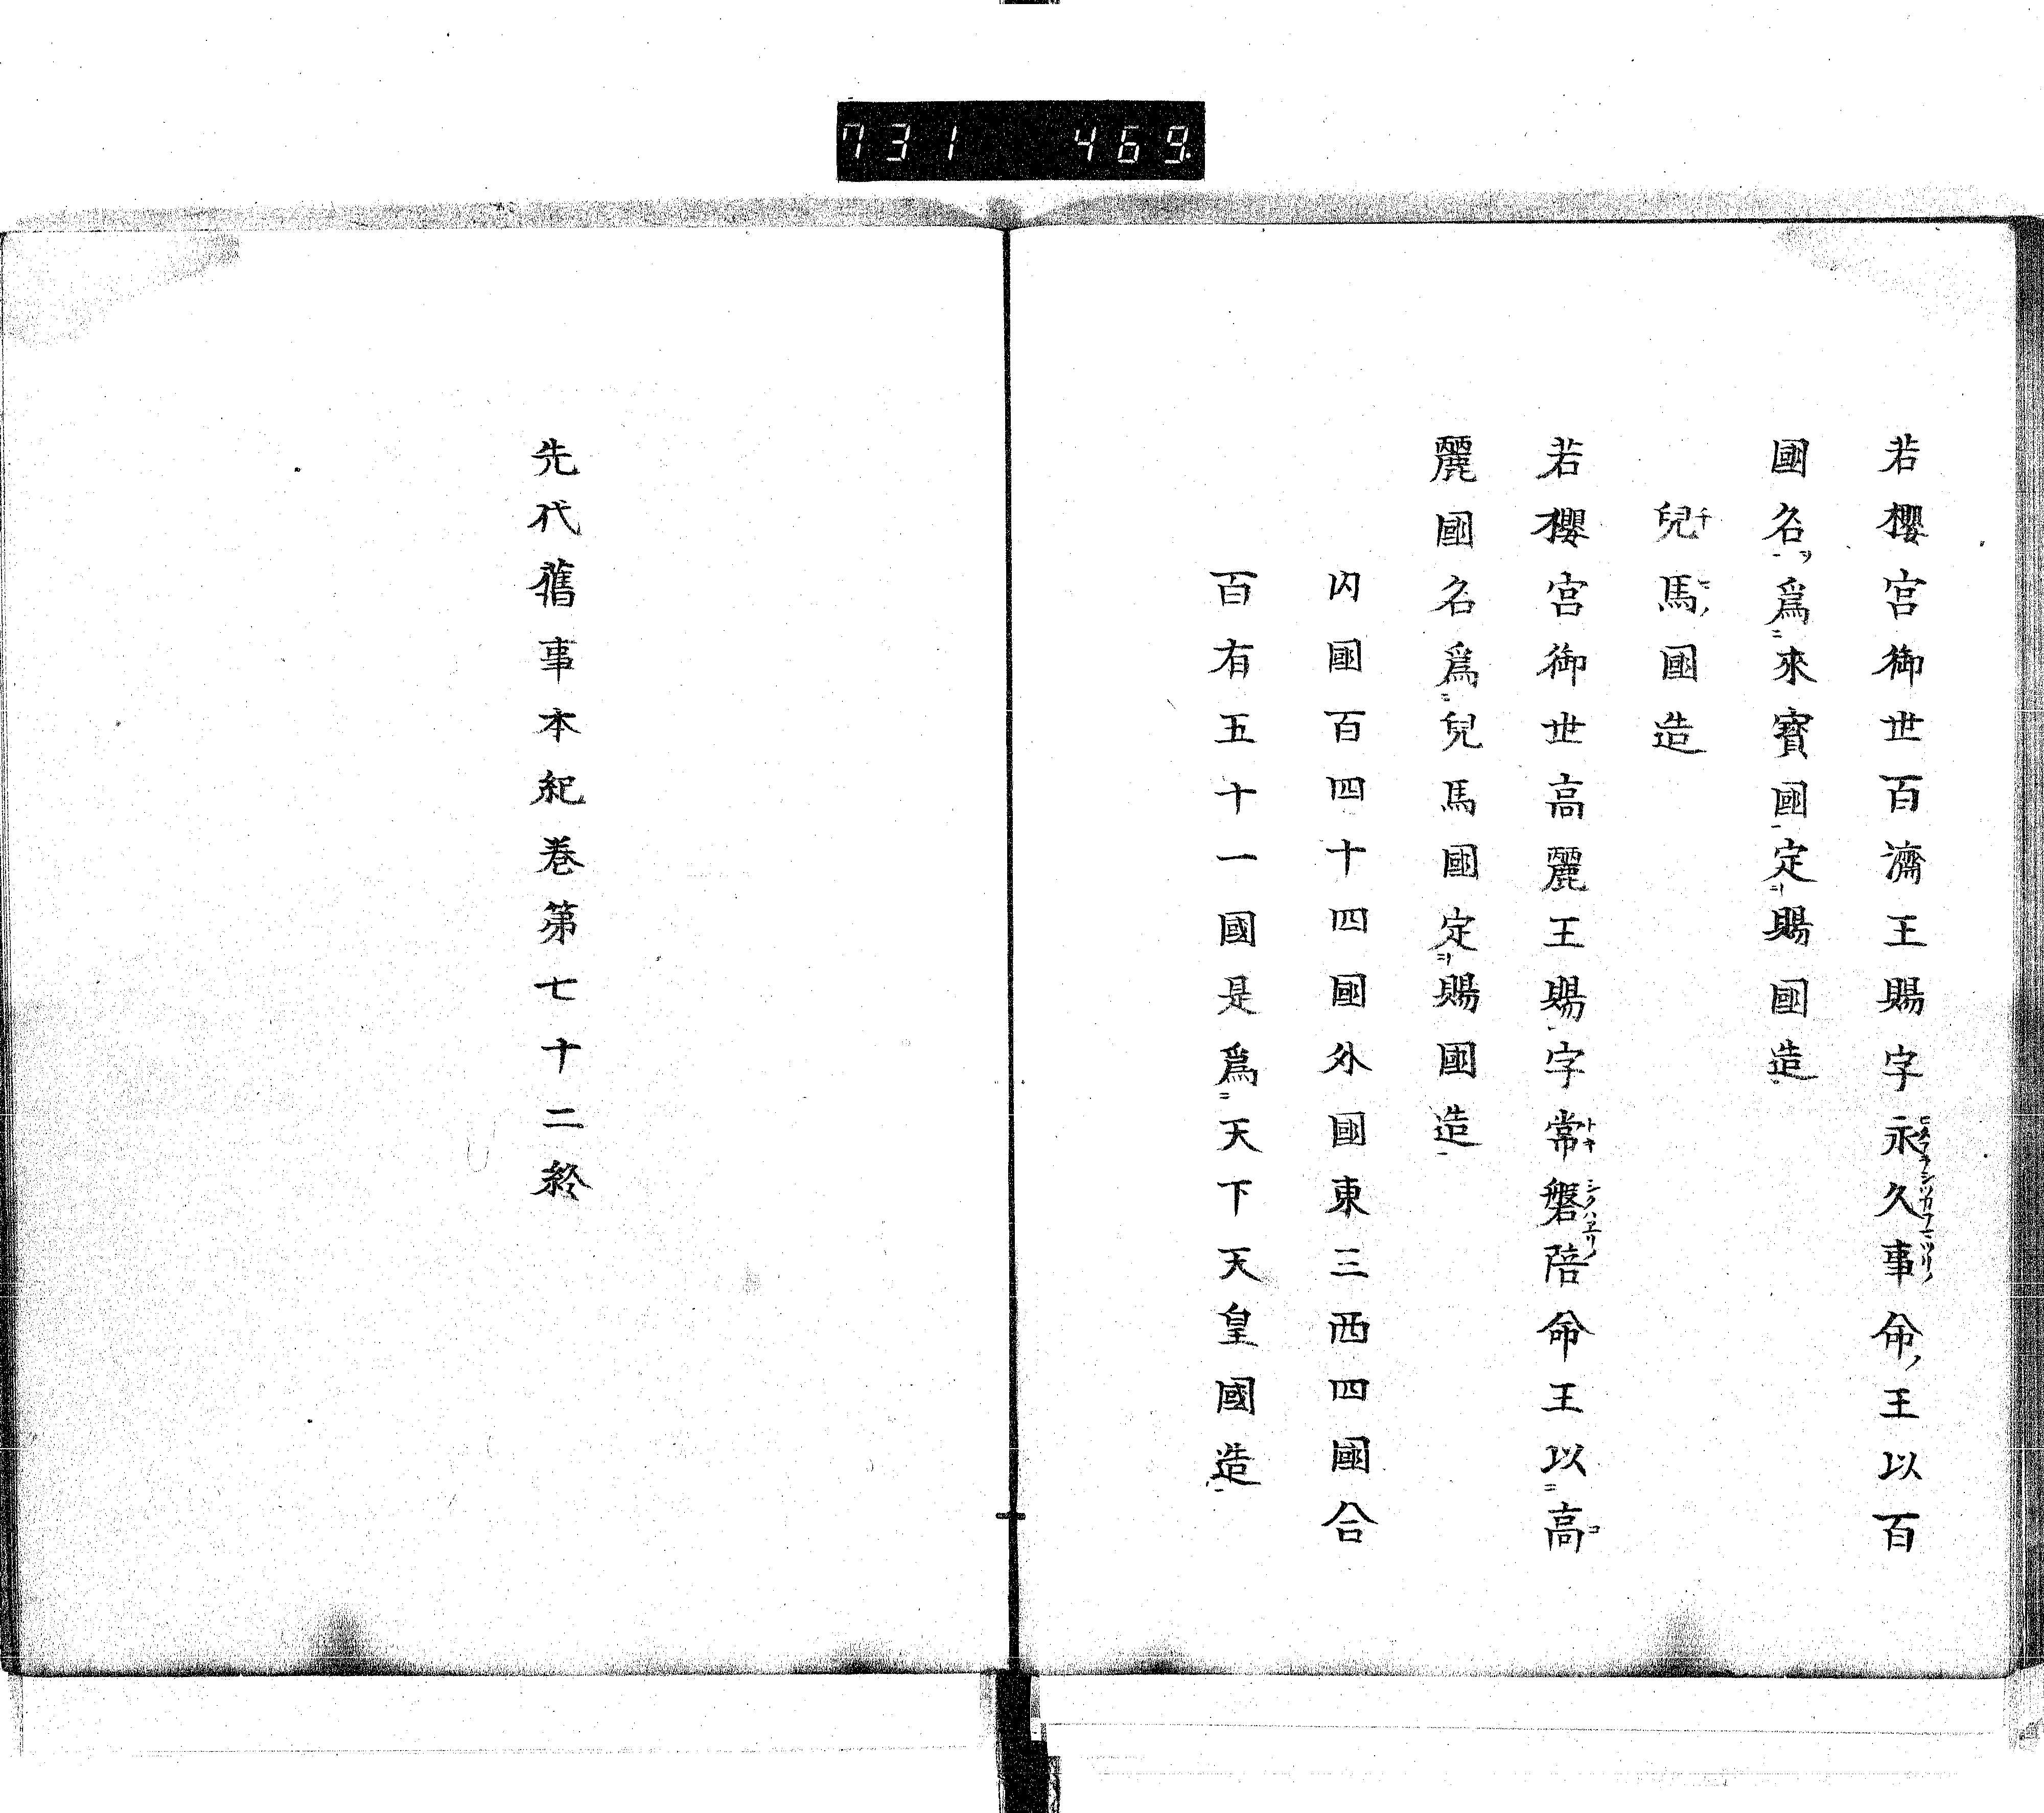 731 469
若櫻宮御世百濟王賜字永久事命王以百
國名爲來寳國定賜國造
兒馬國造
若櫻宮御世高麗王賜字常磐陪命王以高
麗國名爲兒馬國定賜國造
内國百四十四國外國東三西四國合
百有五十一國是爲天下天皇國造
先代舊事本紀巻第七十二終